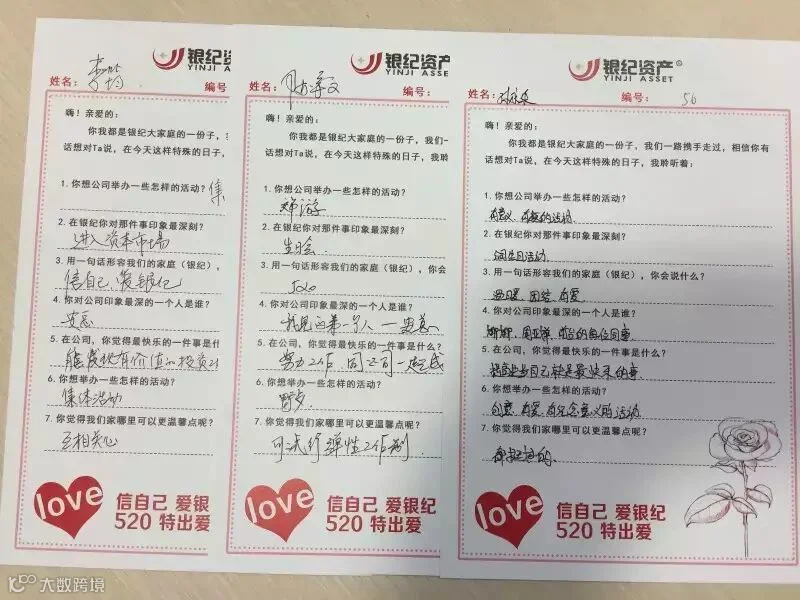 银纪资
YINJI ASSE
姓名：
编号
嗨！亲爱的：
你我都是银纪大家庭的一份子，
话想对Ta说，在今天这样特殊的日子，
1. 你想公司举办一些怎样的活动？集
2. 在银纪你对那件事印象最深刻？
进入资本市场
3. 用一句话形容我们的家庭（银纪），
信自己、爱银纪
4. 你对公司印象最深的一个人是谁？
5. 在公司，你觉得最快乐的一件事是什
能发现有价值的投资
6. 你想举办一些怎样的活动？
集体活动
7. 你觉得我们家哪里可以更温馨点呢？
互相关心
love
信自己 爱银纪
520 特出爱
银纪资产
YINJI ASSE
姓名：
编号：
嗨！亲爱的：
你我都是银纪大家庭的一份子，我们一
话想对Ta说，在今天这样特殊的日子，我聆
1. 你想公司举办一些怎样的活动？
郊游
2. 在银纪你对那件事印象最深刻？
生日会
3. 用一句话形容我们的家庭（银纪），你会
4. 你对公司印象最深的一个人是谁？
我见的第一个人
5. 在公司，你觉得最快乐的一件事是什么？
努力工作 同公司一起成
6. 你想举办一些怎样的活动？
7. 你觉得我们家哪里可以更温馨点呢？
可试行弹性工作制
love
信自己 爱银纪
520 特出爱
银纪资产®
YINJI ASSET
姓名：
编号： 56
嗨！亲爱的：
你我都是银纪大家庭的一份子，我们一路携手走过，相信你有
话想对Ta说，在今天这样特殊的日子，我聆听着：
1. 你想公司举办一些怎样的活动？
有意义、有趣的活动
2. 在银纪你对那件事印象最深刻？
生日活动
3. 用一句话形容我们的家庭（银纪），你会说什么？
温暖、团结、有爱
4. 你对公司印象最深的一个人是谁？
5. 在公司，你觉得最快乐的一件事是什么？
6. 你想举办一些怎样的活动？
创意、有爱、有纪念意义的活动
7. 你觉得我们家哪里可以更温馨点呢？
love
信自己 爱银纪
520 特出爱
大数跨境